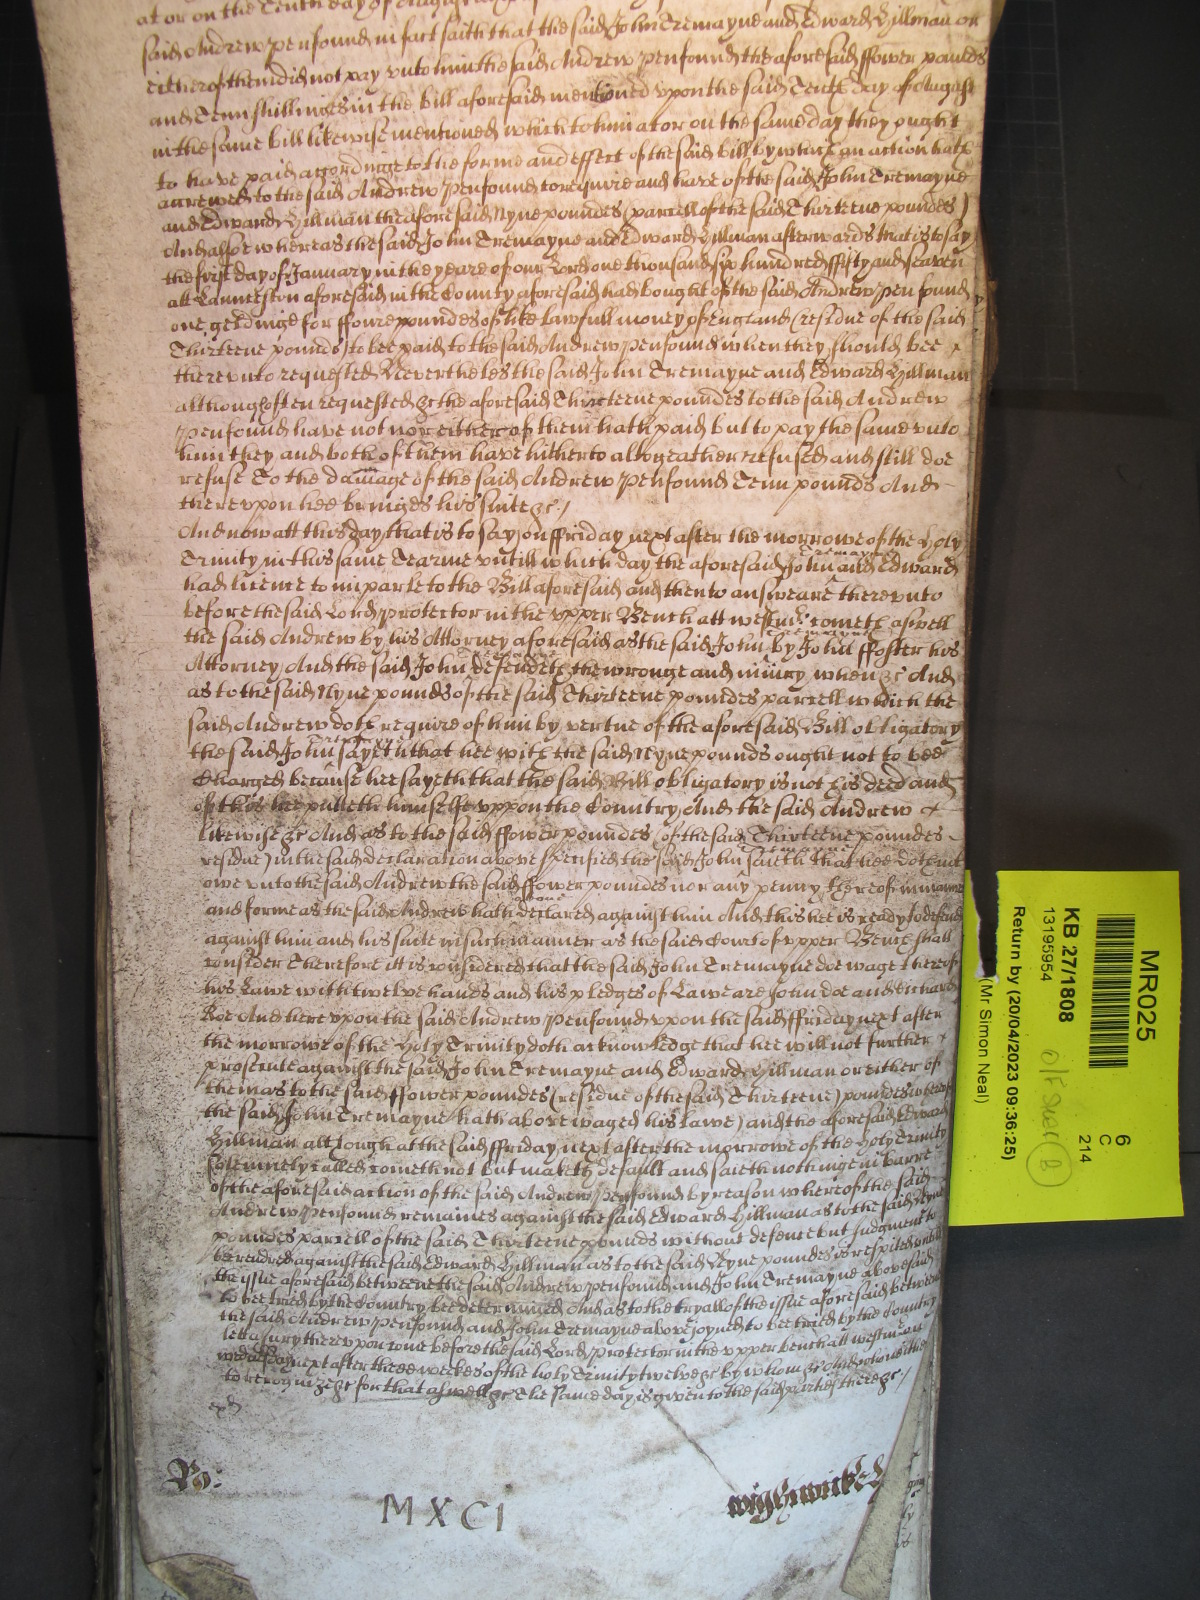 at or on the Tenth day of August
said Andrew Penfound in fact saith that the said John Tremayne and Edward Hillman or
either of them did not pay unto him the said Andrew Penfound the aforesaid ffower pounds
and Tenn shillinges in the bill aforesaid mentioned upon the said Tenth day of August
in the same bill likewise mentioned which to him at or on the same day they ought
to have paid accordinge to the forme and effect of the said bill by which an action hath
accrewed to the said Andrew Penfound to require and have of the said John Tremayne
and Edward Hillman the aforesaid Nyne poundes (parcell of the said Thirteene poundes)
And alsoe whereas the said John Tremayne and Edward Hillman afterwards that is to say
the first day of January in the yeare of our Lord one thousand six hundred ffifty and seaven
att Lanceston aforesaid in the County aforesaid had bought of the said Andrew Penfound
one geldinge for ffowre poundes of like lawfull money of England (residue of the said
Thirteene pounds) to bee paid to the said Andrew Penfound when they should bee
thereunto requested Neverthelesse the said John Tremayne and Edward Hillman
although often requested &c the aforesaid Thirteene poundes to the said Andrew
Penfound have not nor either of them hath paid but to pay the same unto
him they and both of them have hitherto altogeather refused and still doe
refuse To the damage of the said Andrew Penfound Tenn pounds And
thereupon hee bringes his suite &c /
And now att this day that is to say on ffriday next after the morrowe of the Holy
Trinity in this same Tearme untill which day the aforesaid John Tremayne and Edward
had licence to imparle to the Bill aforesaid and then to answeare thereunto
before the said Lord Protector in the upper Bench att Westm^r cometh aswell
the said Andrew by his Attorney aforesaid as the said John Tremayne by John ffoster his
Attorney And the said John Tremayne defendeth the wronge and iniury when &c And
as to the said Nyne pounds of the said Thirteene poundes parcell which the
said Andrew doth require of him by vertue of the aforesaid Bill obligatory
the said John Tremayne sayeth that hee with the said Nyne pounds ought not to bee
Charged because hee sayeth that the said Bill obligatory is not his deed and
of this hee putteth himselfe uppon the Country And the said Andrew
likewise &c And as to the said ffower poundes (of the said Thirteene poundes
residue) in the said declaration above specified the said John Tremayne saieth that hee doth not
owe unto the said Andrew the said ffower poundes nor any penny thereof in manner
and forme as the said Andrew hath above declared against him And this hee is ready to defend
against him and his suite in such manner as the said Court of upper Bench shall
consider Therefore itt is considered that the said John Tremayne doe wage thereof
his Lawe with twelve hands and his pledges of Lawe are John doe and Richard
Roe And hereupon the said Andrew Penfound upon the said ffriday next after
the morrowe of the Holy Trinity doth acknowledge that hee will not further
prosecute against the said John Tremayne and Edward Hillman or either of
them as to the said ffower poundes (residue of the said Thirteene) poundes whereof
the said John Tremayne hath above waged his Lawe) and the aforesaid Edward
Hillman although at the said ffriday next after the morrowe of the Holy Trinity
solemnely called cometh not but maketh default and saieth nothinge in barre
of the aforesaid action of the said Andrew Penfound by reason whereof the said
Andrew Penfound remaines against the said Edward Hillman as to the said Nyne
pounds parcell of the said Thirteene pounds without defence but Judgment to
be rendred against the said Edward Hillman as to the said Nyne poundes is respited untill
the issue aforesaid betweene the said Andrew Penfound and John Tremayne above said
to bee tried by the Country bee determined And as to the tryall of the issue aforesaid betweene
the said Andrew Penfound and John Tremayne above joyned to bee tried by the Country
lett a Jury thereupon come before the said Lord Protector in the upper bench att Westm^r on
wednesday next after three weekes of the holy Trinity twelve &c by whom &c And who neither
to recognize &c for that aswell &c The same day is given to the said parties there &c /
Ro:
MXCI
wightwicke
MR025
6
C
214
KB 27/1808
13195954
Return by (20/04/2023 09:36:25)
(Mr Simon Neal)